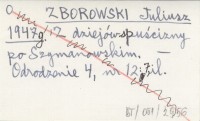 ZBOROWSKI Juliusz
1947. Z dziejów spuścizny
po Szymanowskim. —
Odrodzenie 4, nr 12: 7, il.